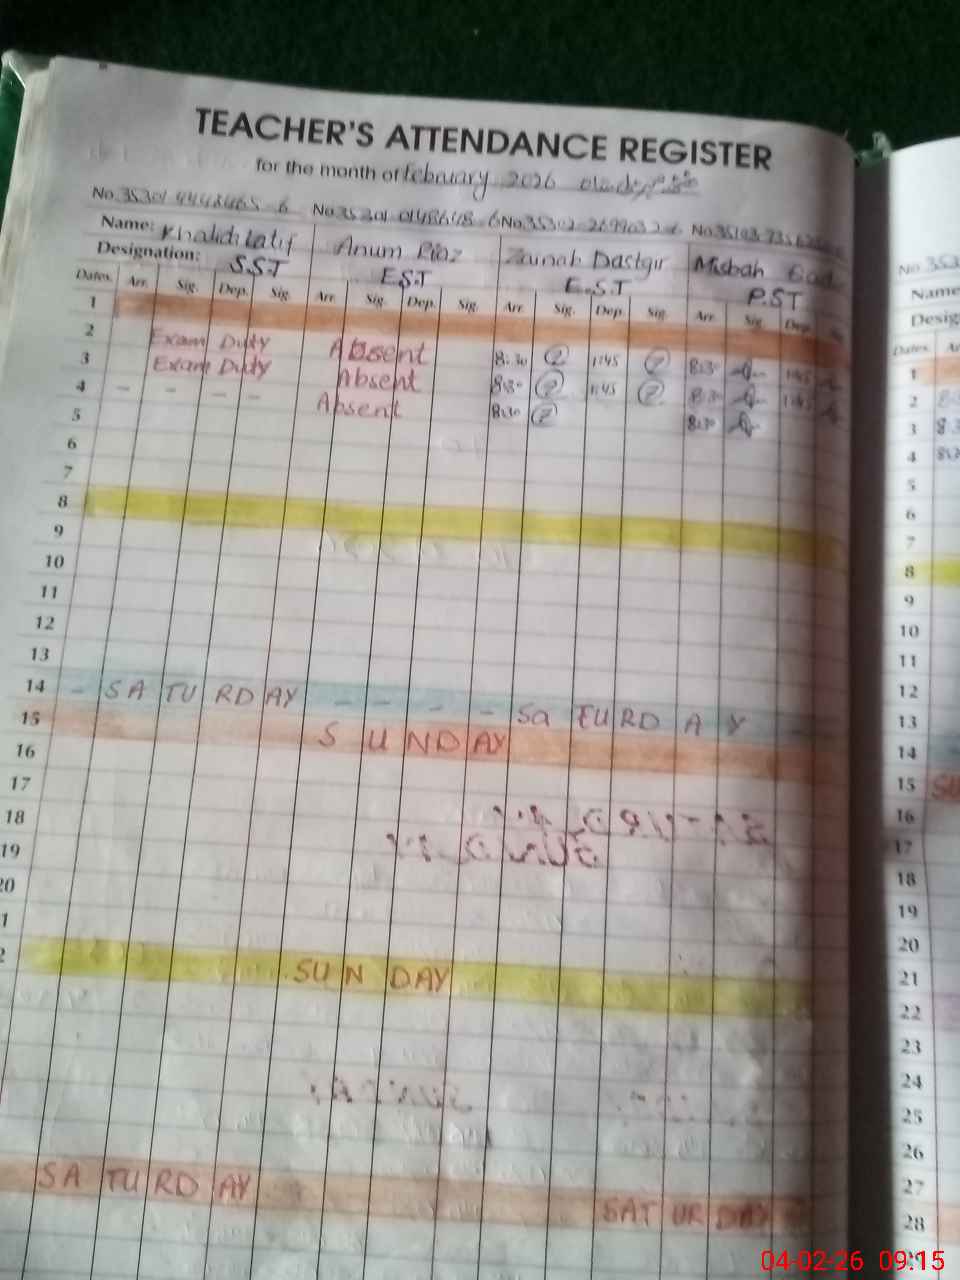 TEACHER'S ATTENDANCE REGISTER
for the month of February 2026
No. 35301 4448465-6 No 35201-0148648-6 No 35302-2699032-6 No 35103-
Name: Khalid Latif Anum Riaz Zainab Dastgir Misbah
Designation: S.S.T E.S.T E.S.T P.ST
Dates Arr. Sig. Dep. Sig. Arr. Sig. Dep. Sig. Arr. Sig. Dep. Sig. Arr. Sig. Dep.
1
2 Exam Duty Absent 8:30 1:45 8:30 1:45
3 Exam Duty Absent 8:30 1:45 8:30 1:45
4 - - - - Absent 8:30 8:30
5
6
7
8
9
10
11
12
13
14 - SATURDAY - - - - SaTURDAY
15 SUNDAY
16
17
18
19
20
1
2 SUNDAY
SATURDAY SATURDAY
No. 353
Name
Desig
Dates
1
2 8
3 8.3
4 8:3
5
6
7
8
9
10
11
12
13
14
15 SU
16
17
18
19
20
21
22
23
24
25
26
27
28
04-02-26 09:15